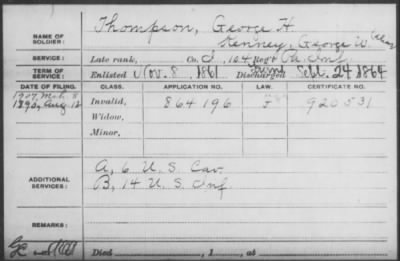 NAME OF SOLDIER: Thompson, George H.
Kenney, George W. (alias
SERVICE: Late rank, Co. I, 104 Reg't Pa. Inf.
TERM OF SERVICE: Enlisted Nov. 8, 1861 Discharged Sept. 24, 1864
DATE OF FILING. CLASS. APPLICATION NO. LAW. CERTIFICATE NO.
1890, Aug. 12 Invalid, 864196 920531
Widow,
Minor,
ADDITIONAL SERVICES: A, 6 U.S. Cav.
B, 14 U.S. Inf.
REMARKS:
Died , 1 , at